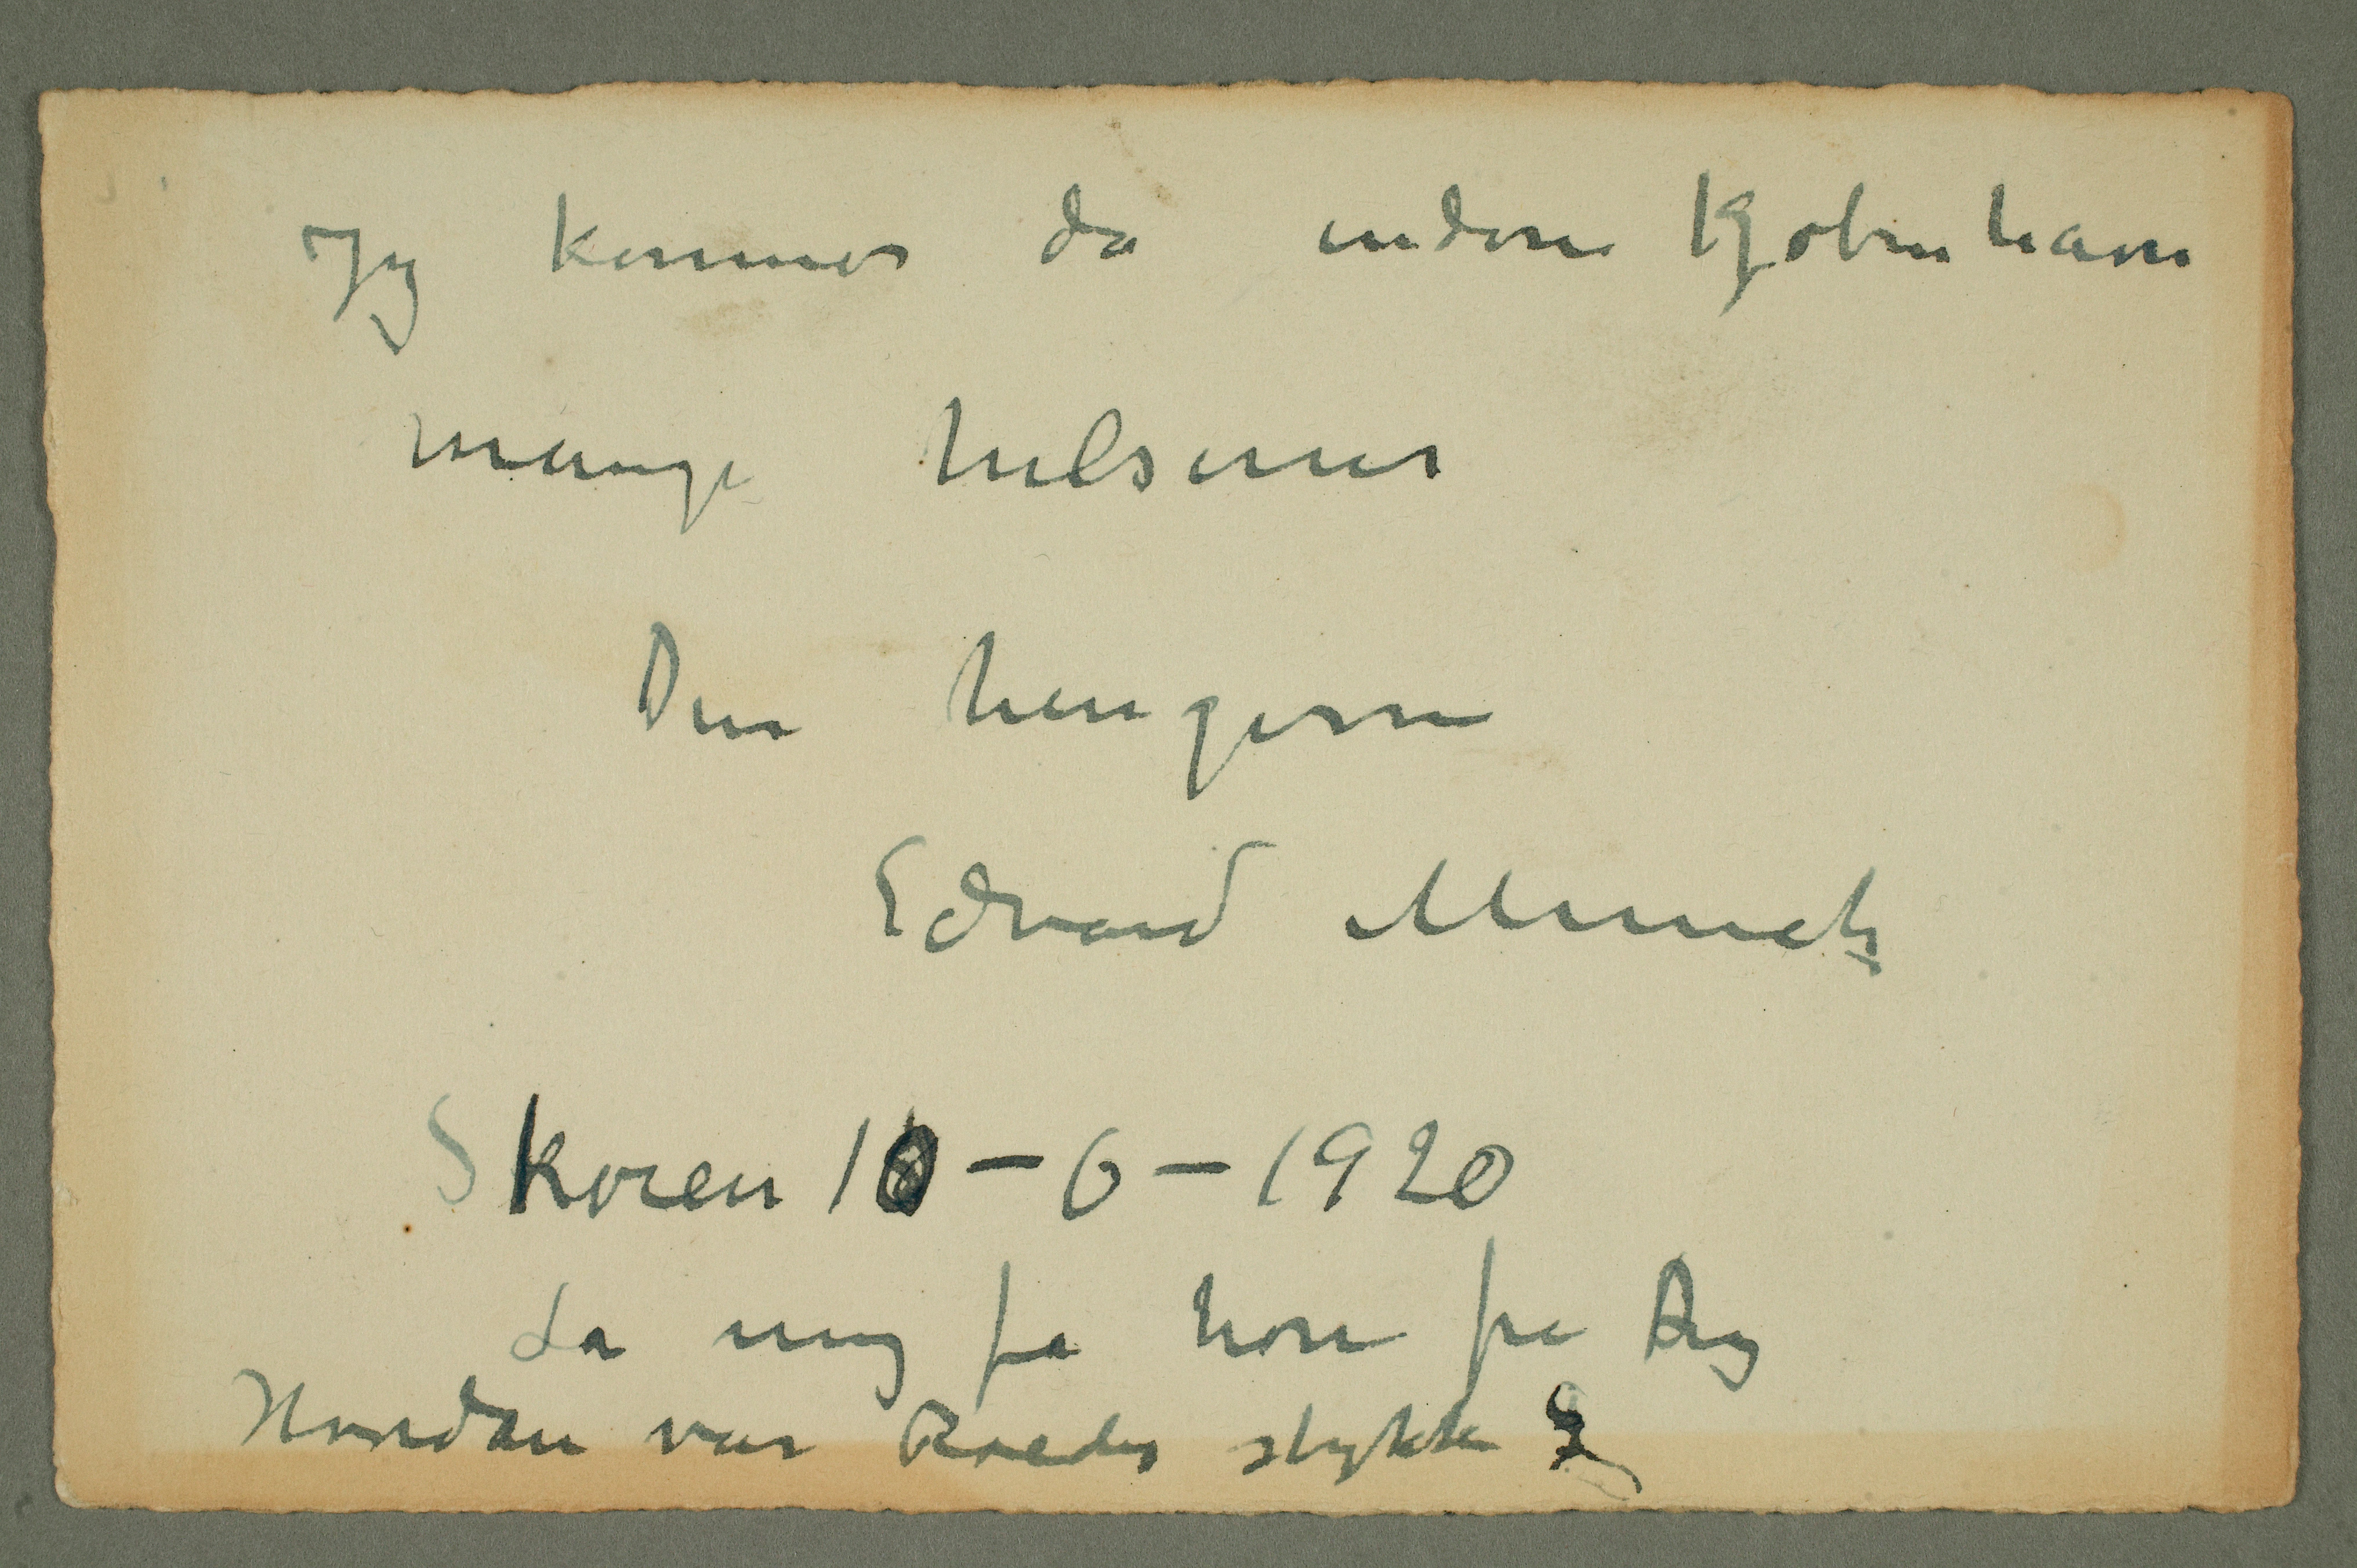 Jeg kommer da indom Kjøbenhavn
Mange hilsener
Din hengivne
Edvard Munch
Skøien 10-6-1920
La mig få høre fra Dig
Hvordan var Roedes stykke